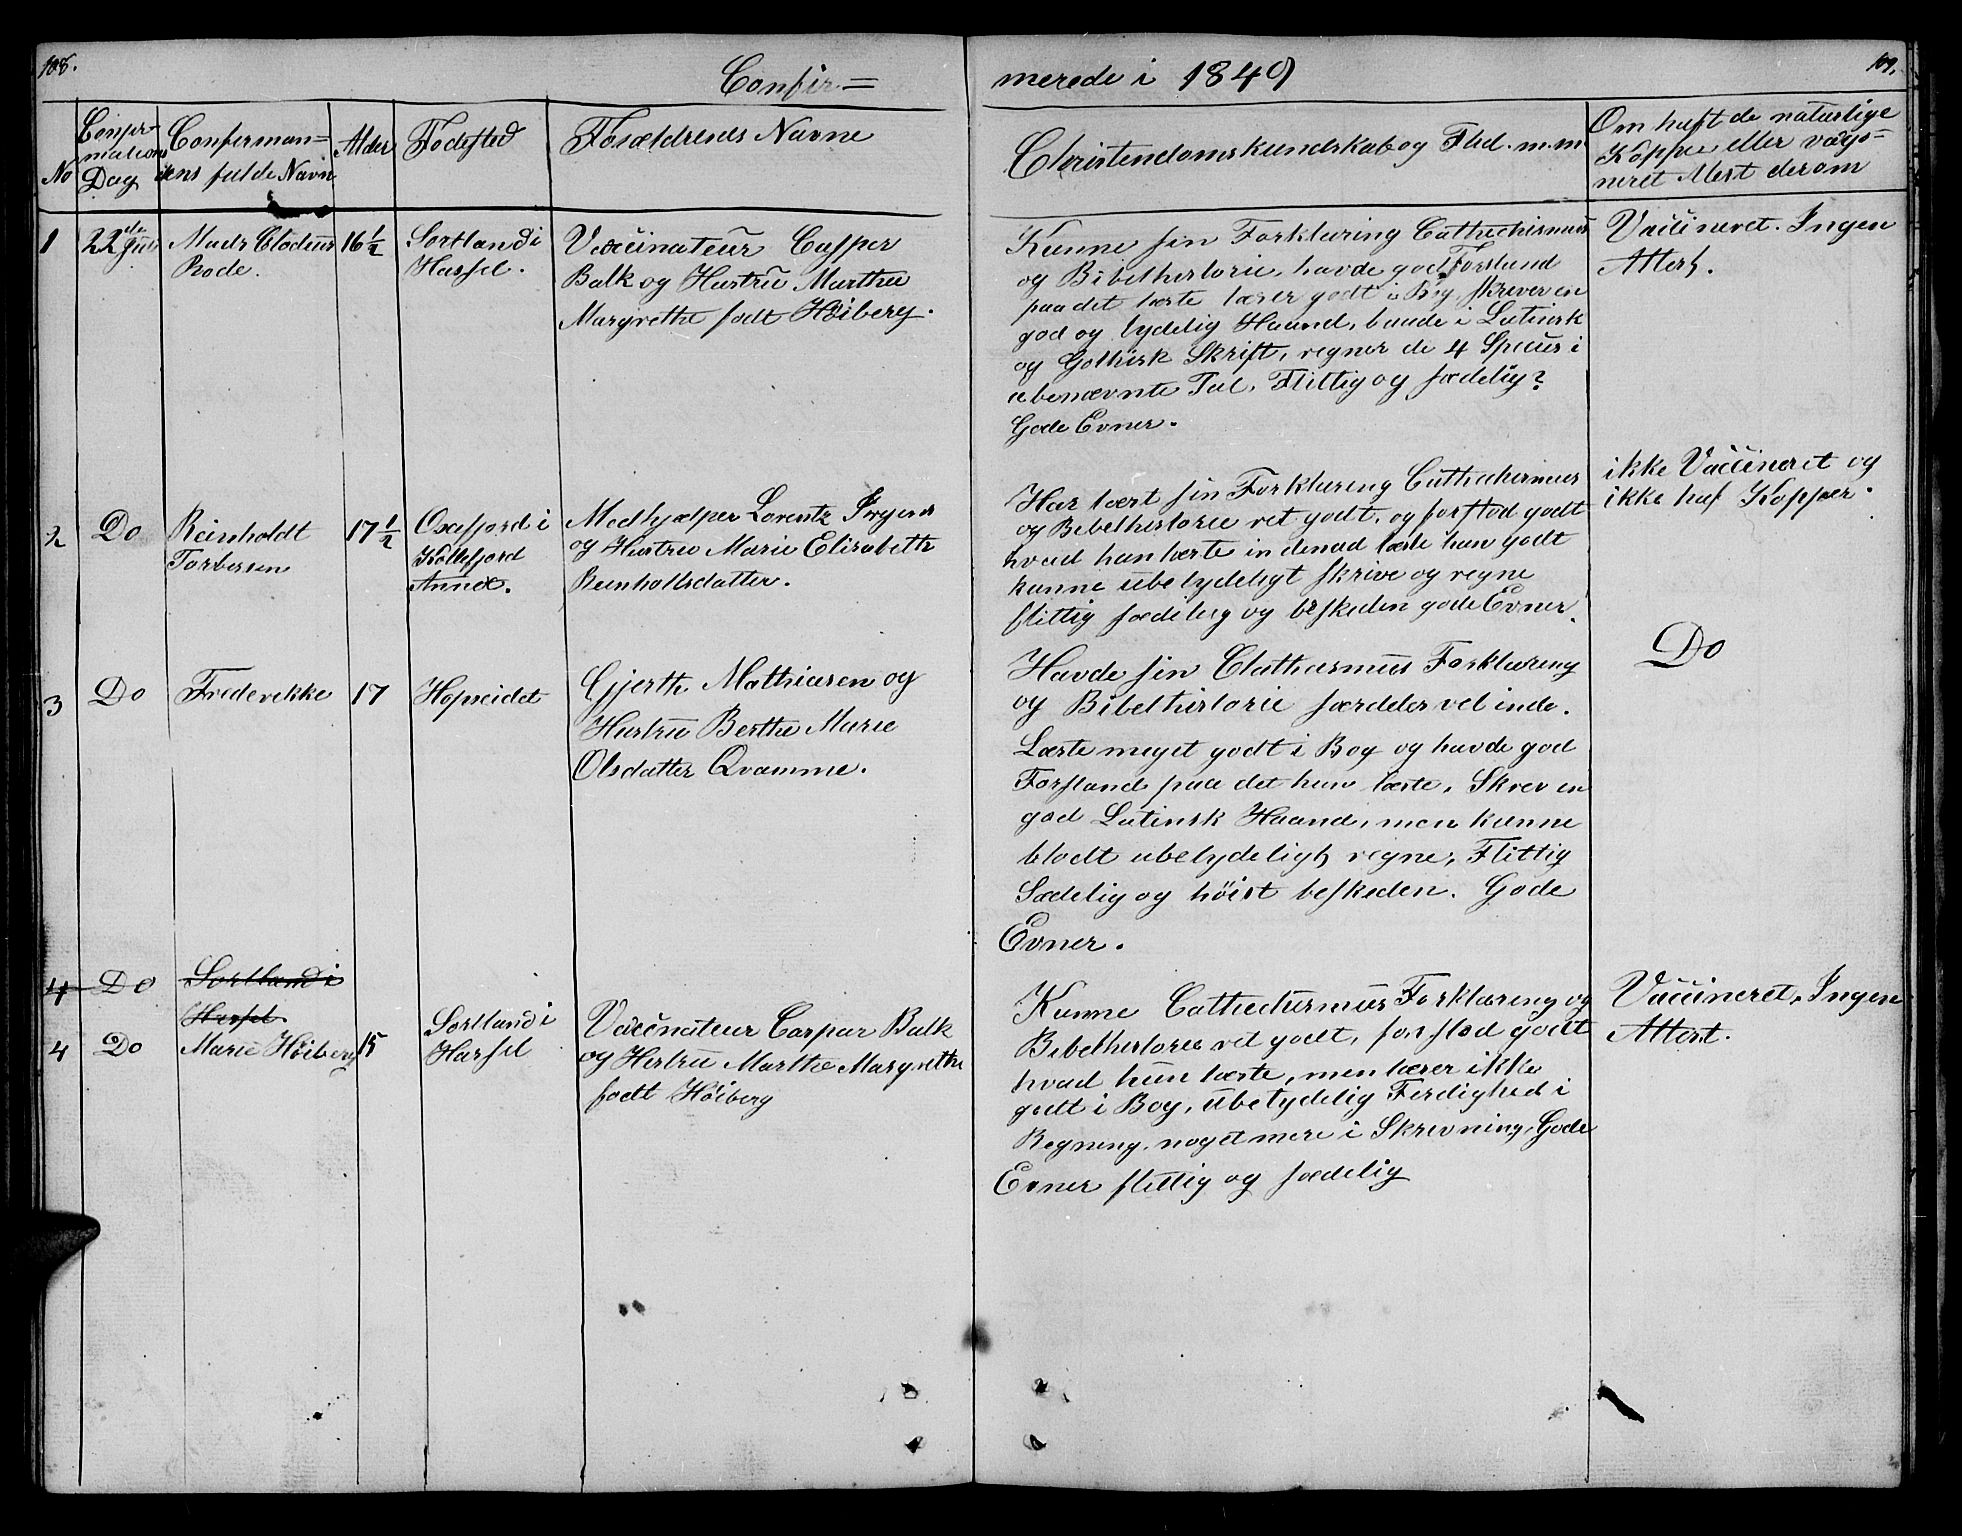 108.
109.
Confir=
merede i 1849
No
Confir-
mations
Dag
Conferman=
dens fulde Navn
Alder
Fødested
Forældrenes Navne
Christendomskundskab og Flid. m.m
Om haft de naturlige
Kopper eller vacs=
neret Atest derom
1
22de Juli
Mads Clodius
Rode.
16 1/2
Sortland i
Hassel.
Vaccinateur Casper
Balk og Hustru Marthe
Margrethe født Høiberg.
Kunne sin Forklaring Cathechismus
og Bibelhistorie, havde god Forstand
paa det lærte læser godt i Bog, skriver en
god og tydelig Haand, baade i Latinsk
og Gothisk Skrift, regner de 4 Species i
ubenævnte Tal. Flittig og sædelig?
Gode Evner.
Vaccineret. Ingen
Attest.
2
Do
Reinholdt
Torbersen
17 1/2
Oxefjord i
Kollefjord
Annex.
Medhjelper Lorentz
og Hustru Marie Elisabeth
Reinholtsdatter.
Har lært sin Forklaring Cathechismus
og Bibelhistorie ret godt, og forstod godt
hvad han lærte indenad læste han godt
kunne ubetydeligt skrive og regne
flittig sædelig og beskeden gode Evner.
ikke Vaccineret og
ikke haf Kopper.
3
Do
Frederikke
17
Hopseidet
Gjerth Mathiasen og
Hustru Berthe Marie
Olsdatter Qvamme.
Havde sin Clathasmus Forklaring
og Bibelhistorie særdeles vel inde.
Læste meget godt i Bog og havde god
Forstand paa det hun lærte. Skrev en
god Latinsk Haand, men kunne
blodt ubetydeligt regne, Flittig
Sædelig og höist beskeden. Gode
Evner.
Do
4 Do Sortland i
Hassel.
4
Do
Marie Høiberg
15
Sortland i
Hassel
Vaccinateur Caspar Balk
og Hustru Marthe Margrethe
født Høiberg
Kunne Cathecismus Forklaring og
Bibelhistorie ret godt, forstod godt
hvad hun lærte, men læser ikke
godt i Bog, ubetydelig Ferdighed i
Regning, noget mere i Skrevning, Gode
Evner flittig og sædelig
Vaccineret, Ingen
Attest.